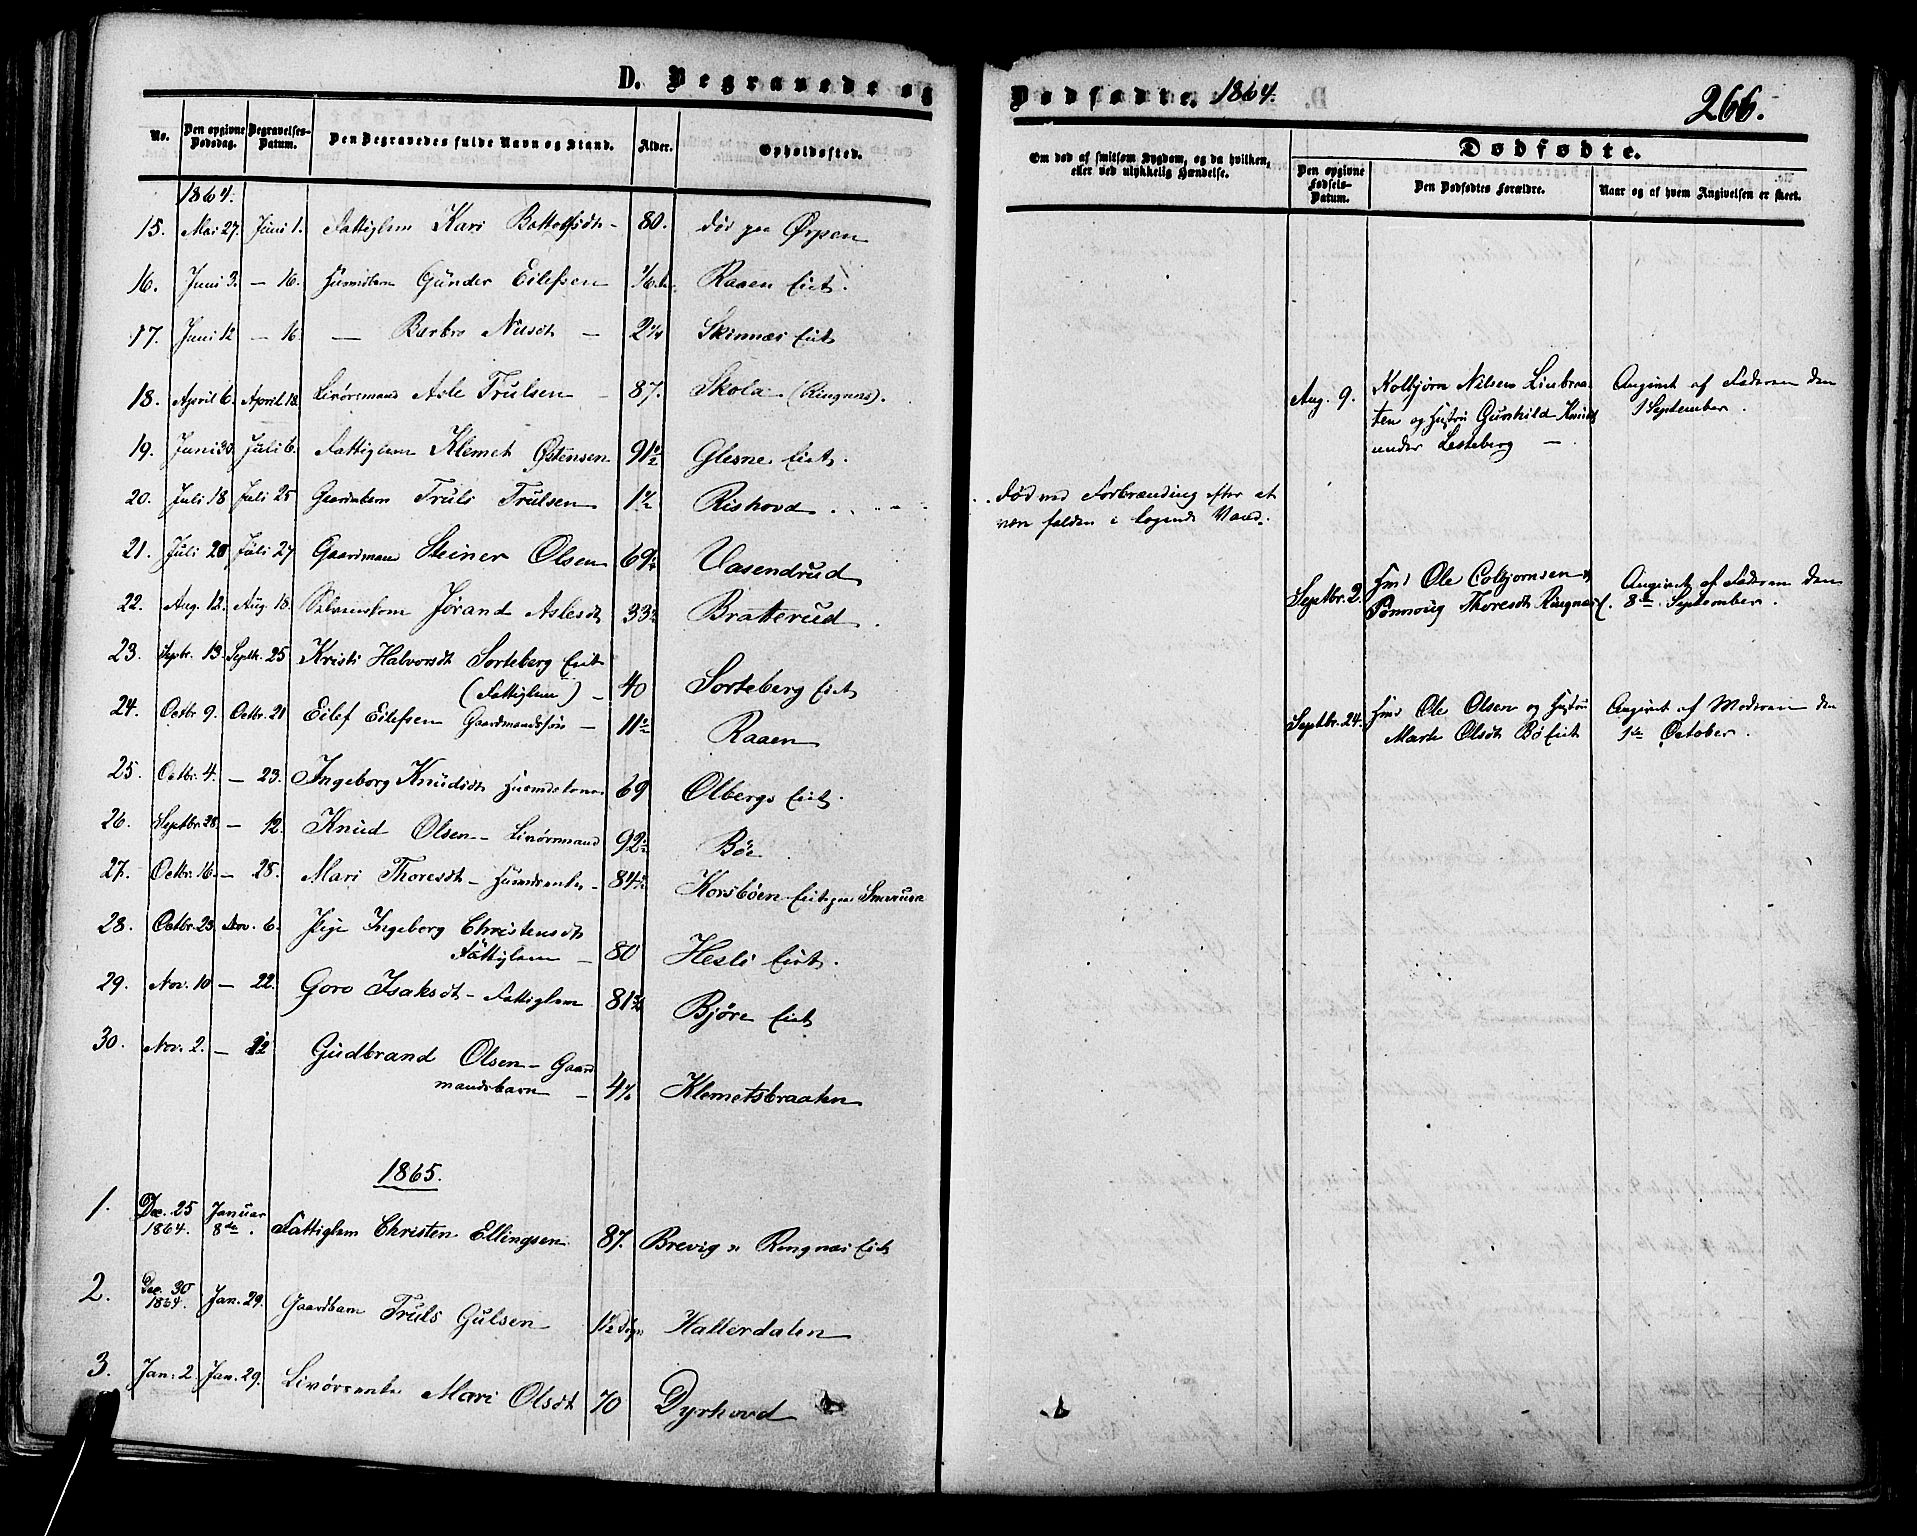 D. Begravede og
No. Den opgivne Dødsdag. Begravelses-Datum. Den Begravedes fulde Navn og Stand. Alder. Opholdssted.
1864.
15. Mai 27. Juni 1. Fattiglem Kari Bottolfsdt - 80. død paa Ørpen
16. Juni 3. - 16. Huusmdbarn Gunder Eilefsen Raaen Eiet.
17. Juni 12 - 16. - Barbro Nilsdt - 2 1/4 Skinnæs Eiet
18. April 6. April 18. Livøresmand Asle Trulsen - 87. Skola (Ringnæs).
19. Juni 30. Juli 6. Fattiglem Klemet Østensen 91 1/2 Glesne Eiet.
20. Juli 18 Juli 25 Gaardbarn Truls Trulsen 1 1/2 Rishovd
21. Juli 20 Juli 27 Gaardmand Steiner Olsen 69 1/2 Vasendrud
22. Aug. 12. Aug. 18. Jørand Aslesdt 33 1/2 Bratterud.
23. Septr. 13. Septr. 25 Kristi Halvorsdt Sorteberg Eiet
(Fattiglem) - 40 Sorteberg Eiet
24. Octbr. 9. Octbr. 21 Eilef Eilefsen Gaardmandssøn - 11 1/2 Raaen
25. Octbr. 4. - 23. Ingeborg Knudsdt Huusmdskone 69 Olbergs Eiet.
26. Septbr. 28. - 12. Knud Olsen - Livøresmand 92 1/2 Bøe
27. Octbr. 16. - 25. Mari Thoresdt - Huusmdsenke - 84 Korsbøen Eie
28. Octbr. 23. Nov. 6. Pige Ingeborg Christensdt
Fattiglem - 80 Hesli Eiet.
29. Nov. 10 - 22. Goro Isaksdt - Fattiglem 81 3/4 Bjøre Eiet
30. Nov. 2. - 12 Gudbrand Olsen - Gaard
mandsbarn - 4 Klemetsbraaten
1865.
1. Dec. 25 1864. Januar 8de. Fattiglem Christen Ellingsen 87. Brevig n Ringnæs Eiet
2. Dec. 30 1864. Jan. 29. Gaardbarn Truls Gulsen 1 1/2 Døgn Hatterdalen
3. Jan. 2. Jan. 29. Livørsenke Mari Olsdt 70 Dyrhovd
Dødfødte. 1864. 266.
Om død af smitsom Sygdom, og da hvilken, eller ved ulykkelig Hændelse.
Dødfødte.
Den opgivne Fødsels-Datum. Den Dødfødtes Forældre. Naar og af hvem Angivelsen er skeet.
Aug. 9. Kolbjørn Nilsen Linbraa- Angivet af Faderen den
ten og Hustru Gunhild Knuds 1 September.
under Lesteberg -
Død ved Forbrænding efter at
være falden i kogende Vand.
Septbr. 2. Hmd Ole Colbjørnsen og Angivet af Faderen den
Thoresdt Ringnæs E. 8de September.
Septbr. 24. Hmd Ole Olsen og Hustru Angivet af Moderen den
Marte Olsdt Bø Eiet 1ste October.